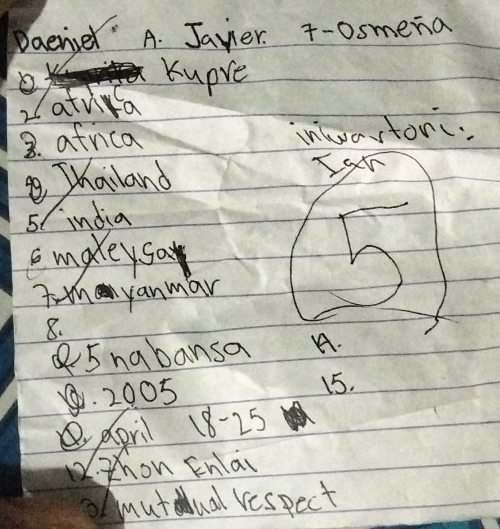 Daeniel A. Javier 7-Osmeña
Kupre
2. africa
3. africa
Thailand
5. india
6 maleysay
7. manyanmar
8.
5 nabansa
2005
april 18-25
12. Zhon Enlai
mutual respect
5
14.
15.